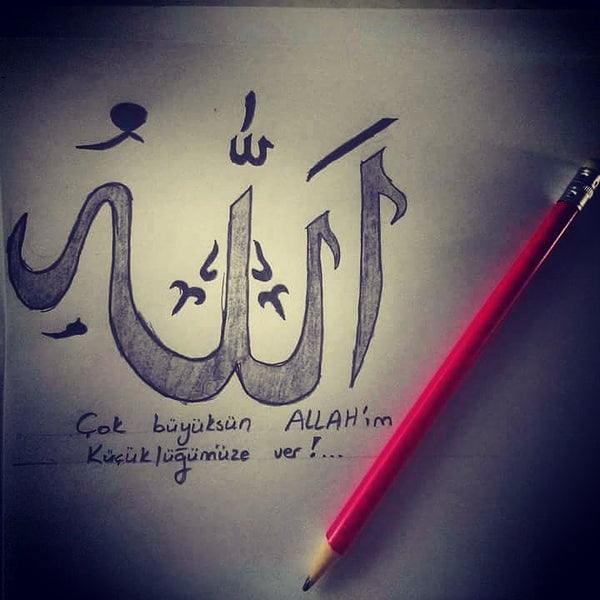 الله
Çok büyüksün ALLAH'ım
Küçüklüğümüze ver!...